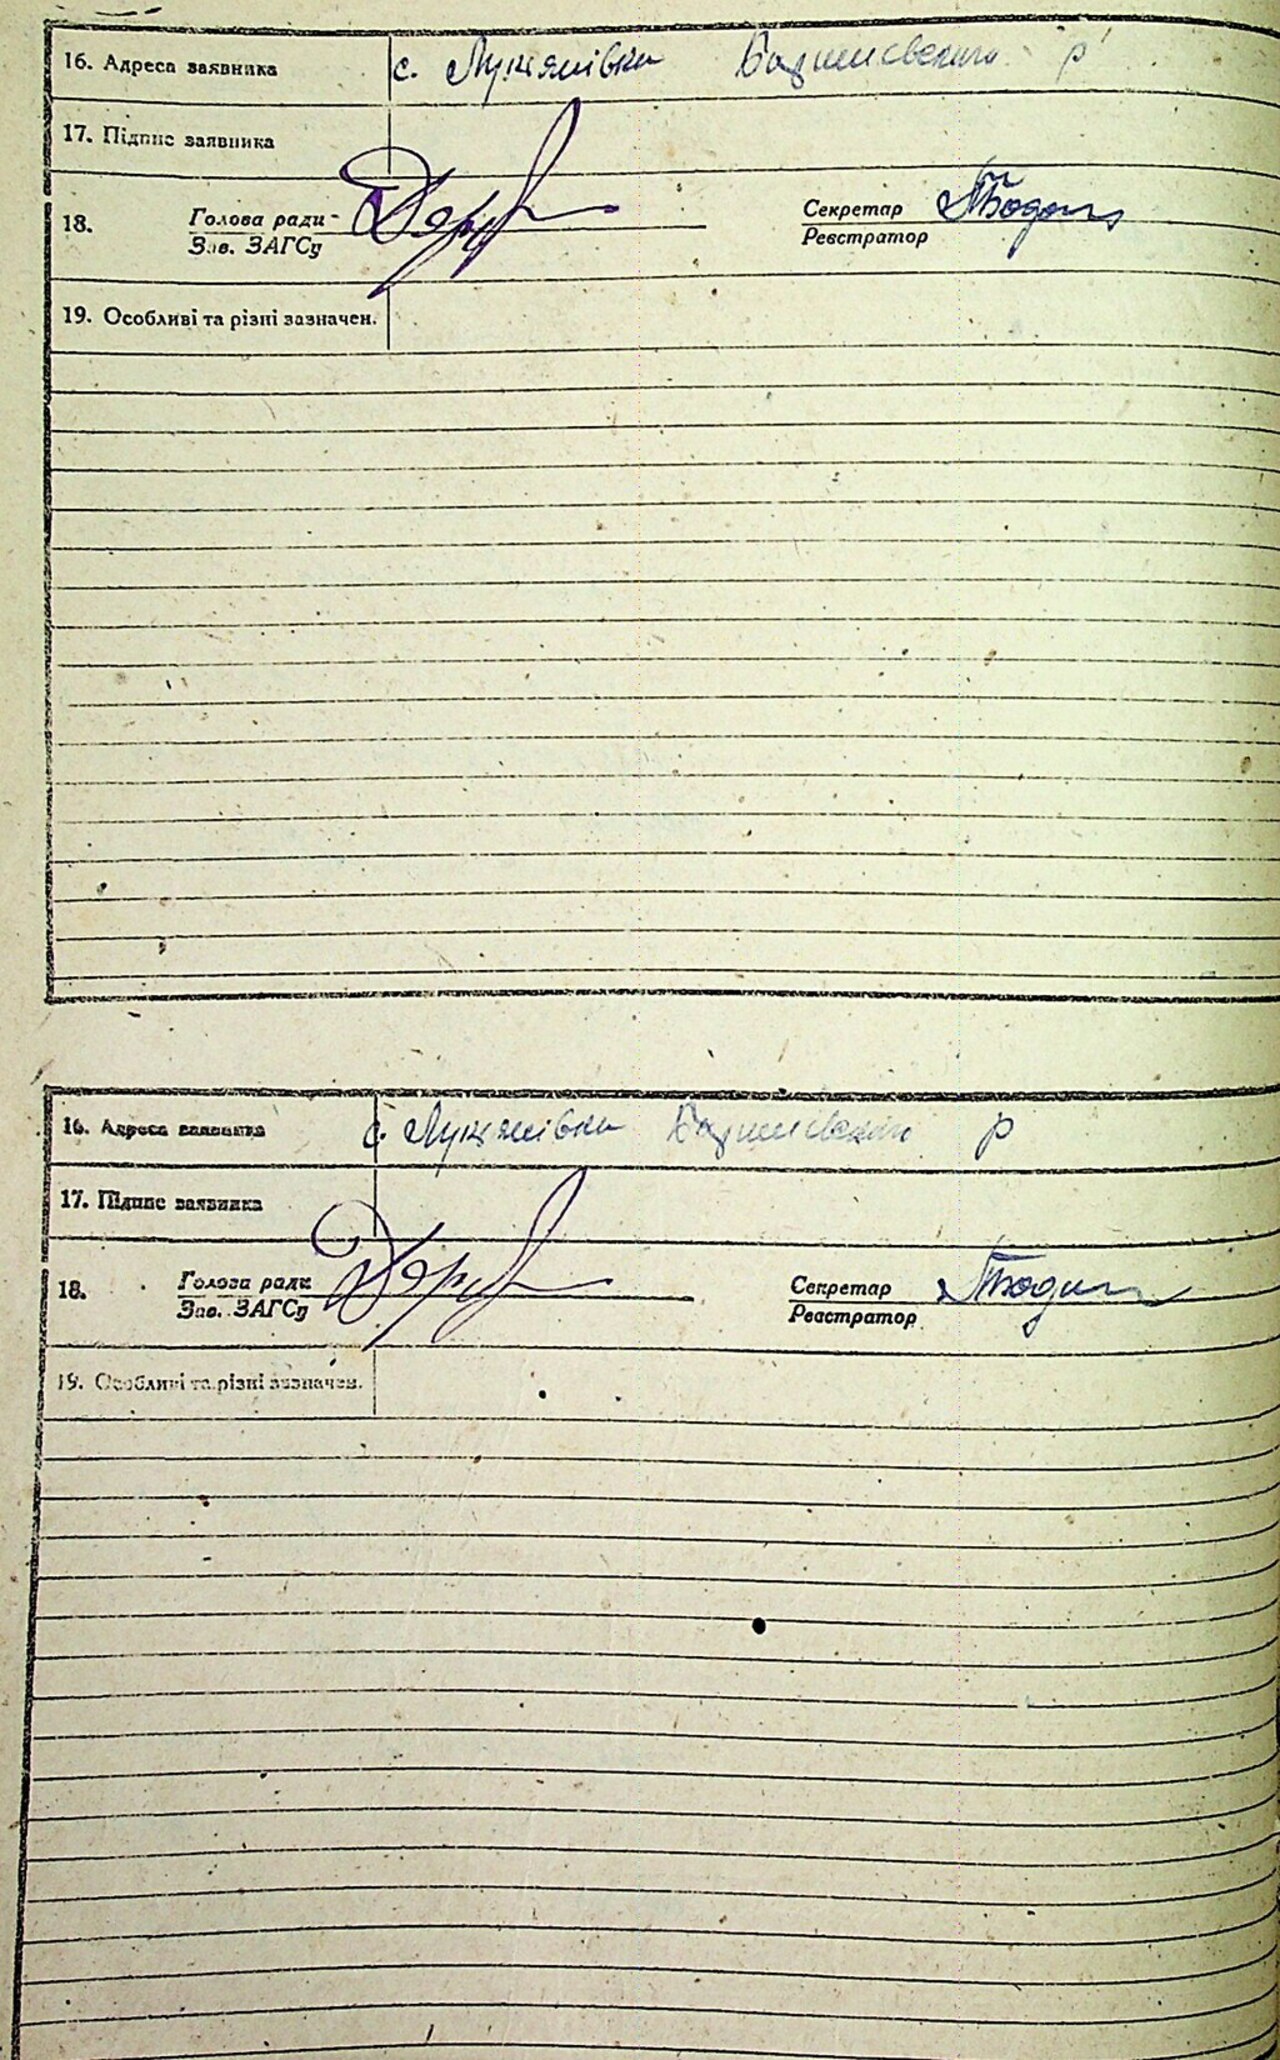 16. Адреса заявника с. Лукянівка Баришевського р
17. Підпис заявника
18. Голова ради - Секретар
Зав. ЗАГСу Реєстратор
19. Особливі та різні зазначен.
16. Адреса заявника с. Лукянівка Баришевського р
17. Підпис заявника
18. Голова ради Секретар
Зав. ЗАГСу Реєстратор
19. Особливі та різні зазначен.